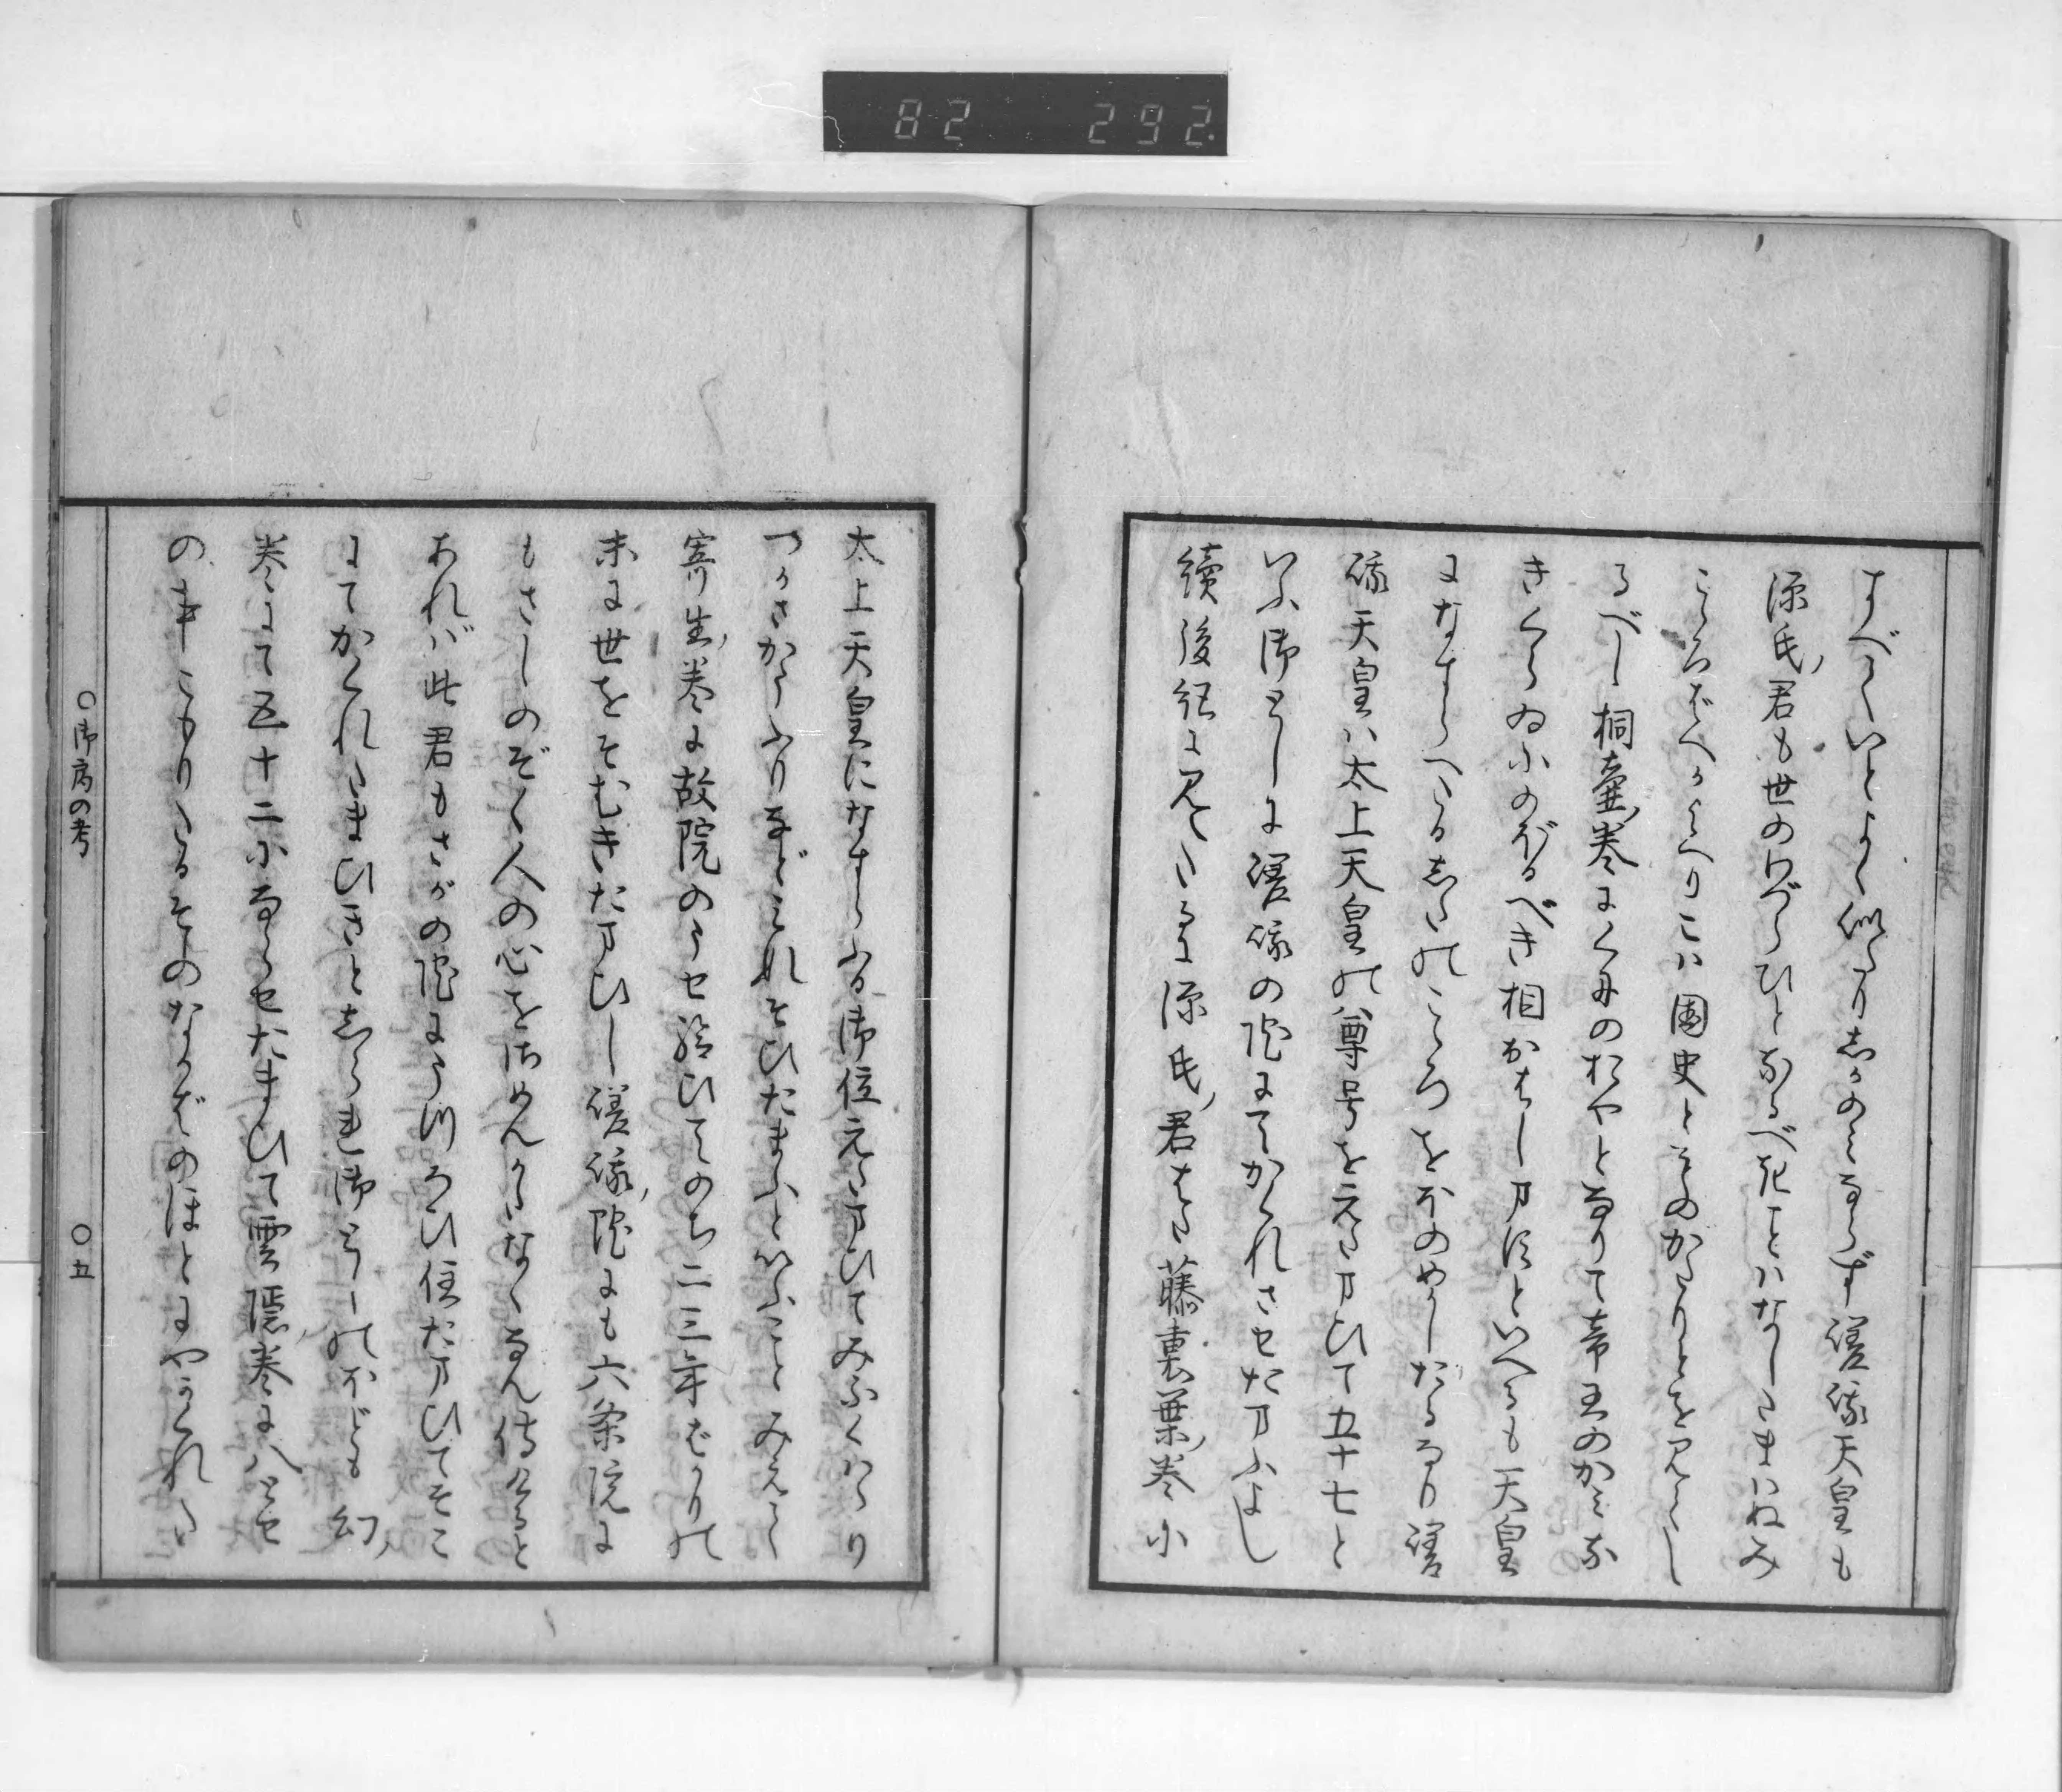 82 292.
すべていとよく似たりしかのみならず嵯峨天皇も
源氏君も世のわづらひとなるべきことハなしたまハぬみ
こゝろばへかよへりこハ国史とそのかたりとを見てし
るべし桐壺巻にくにのおやとなりて帝王のかみな
きくらゐにのぼるべき相おはします人といへるも天皇
になずらへたる志たのこゝろをほのめかしたるなり嵯
峨天皇ハ太上天皇の尊号をえたまひて五十七と
いふ御としに嵯峨の院にてかくれさせたまふよし
続後紀に見えたるに源氏君はた藤裏葉巻に
太上天皇になずらふる御位えたまひてみふくはゝり
つかさかうふりなどみれそひたまふといふことみえて
寄生巻に故院のうせ給ひてのち二三年ばかりの
末に世をそむきたまひし嵯峨院にも六条院に
もさしのぞく人の心をおさめんかたなくなん侍けると
あれバ此君もさがの院にうつろひ住たまひてそこ
にてかくれたまひきとしられ御としのほども幻
巻にて五十二にならせたまひて雲隠巻にハうせ
の事こもりたるそのなかばのほとにやかくれた
〇御局の考
〇五